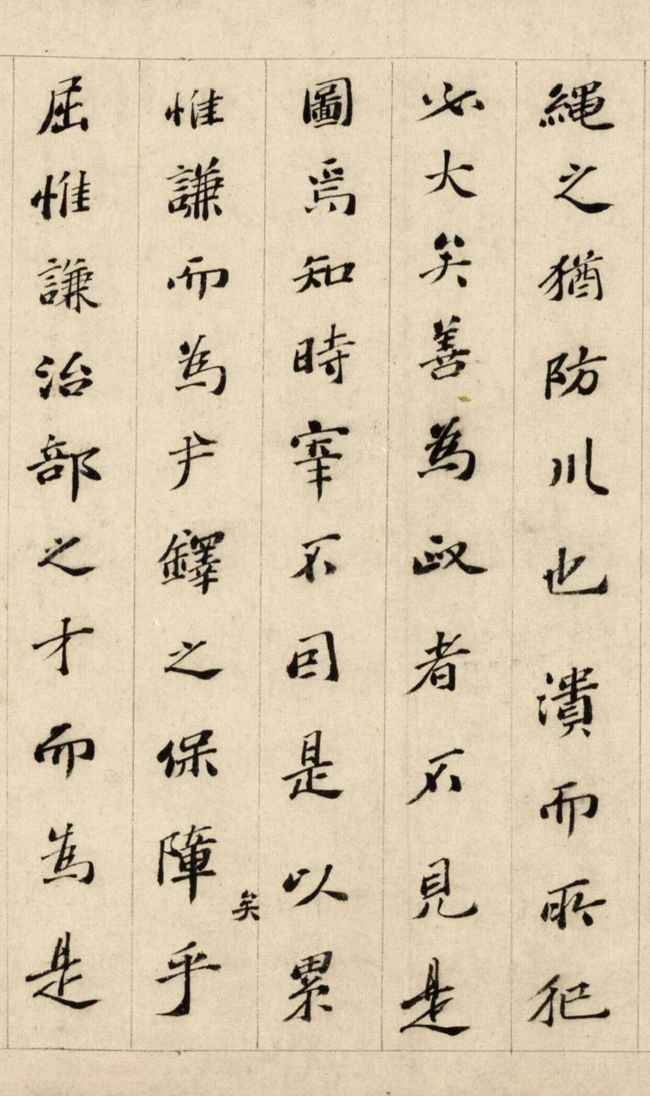 繩之猶防川也潰而所犯
必大矣善為政者不見是
圖焉知時宰不因是以累
矣
惟謙而為尹鐸之保障乎
屈惟謙治部之才而為是